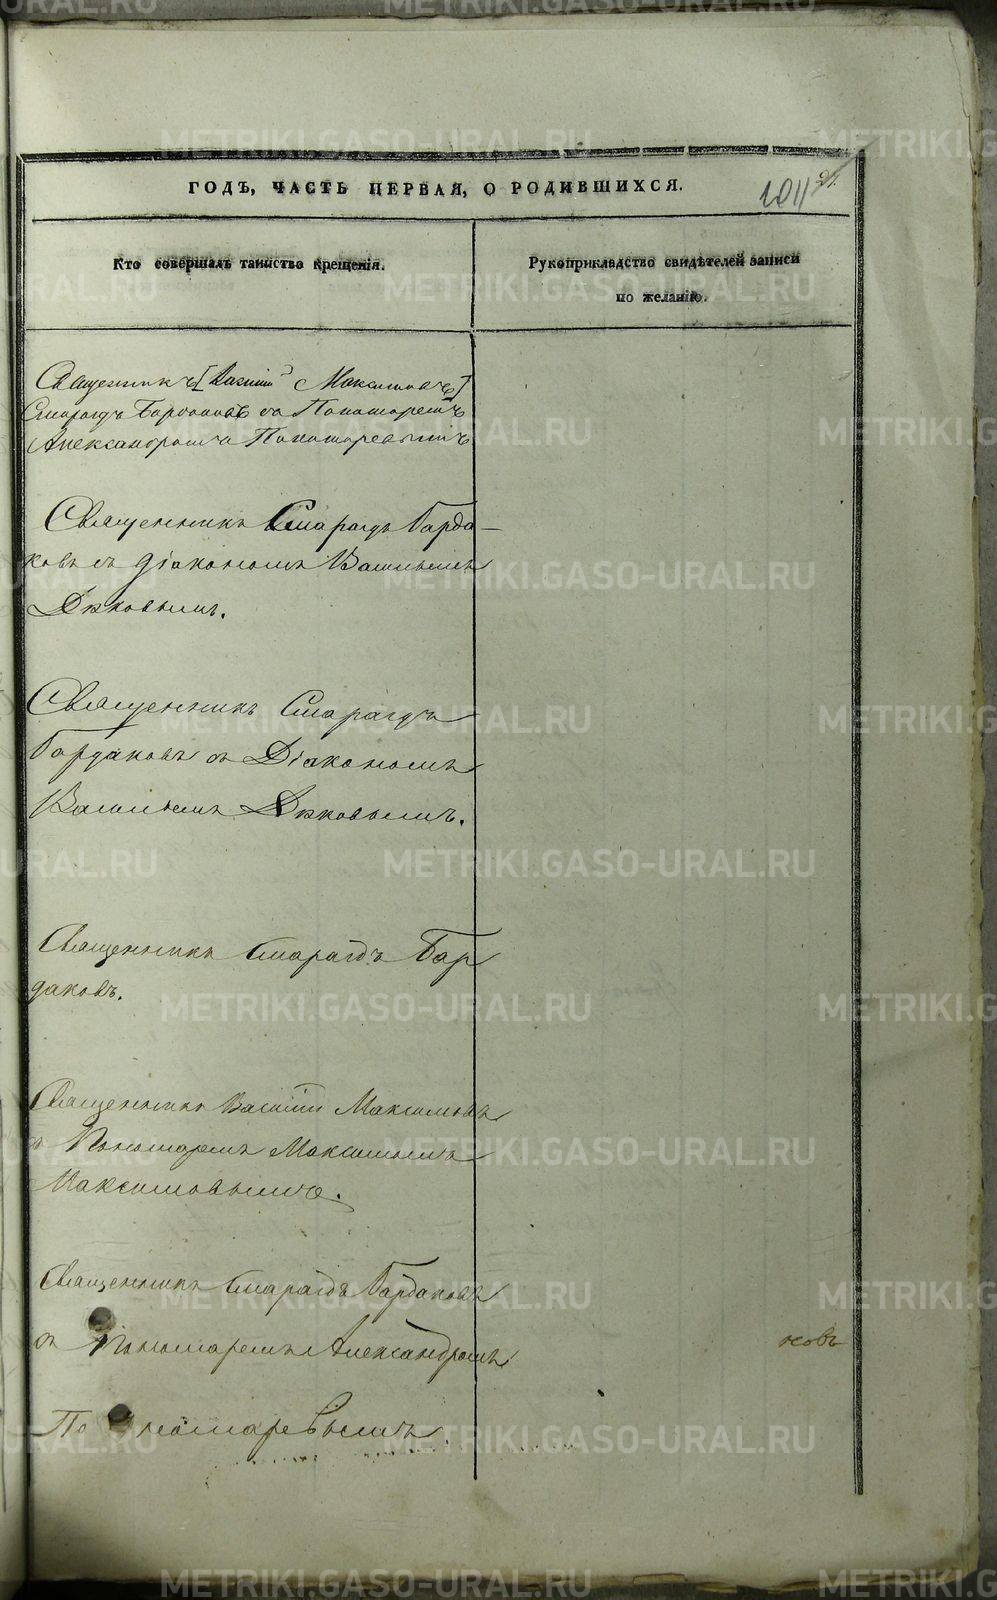 ГОДЪ, ЧАСТЬ ПЕРВАЯ, О РОДИВШИХСЯ.
Кто совершалъ таинство крещенія.
Рукоприкладство свидѣтелей записи
по желанію.
Священникъ [Василій Максимовъ]
Смарагдъ Бардаковъ съ Пономаремъ
Александромъ Пономаревымъ
Священникъ Смарагдъ Барда-
ковъ съ діакономъ Васильемъ
Дѣковымъ.
Священникъ Смарагдъ
Бардаковъ съ Діакономъ
Васильемъ Дѣковымъ.
Священникъ Смарагдъ Бар
даковъ.
Священникъ Василій Максимовъ
съ Пономаремъ Максимомъ
Максимовымъ.
Священникъ Смарагдъ Бардаковъ
съ Пономаремъ Александромъ
Пономаревымъ
новъ
METRIKI.GASO-URAL.RU